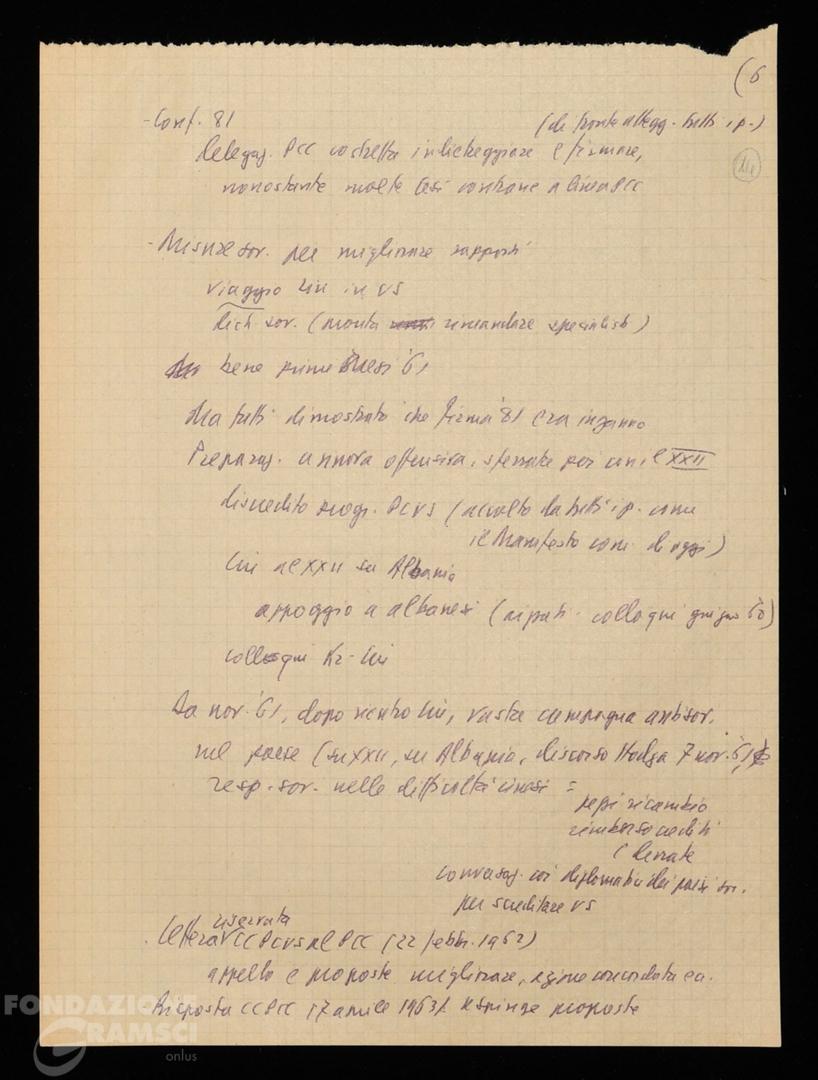 (6
- Conf. 81 (di fronte attegg. tutti i p.)
Delegaz. PCC costretta indietreggiare e firmare,
nonostante molte tesi contrarie a linea PCC
- Misure sov. per migliorare rapporti
viaggio Liu in US
dich. sov. (pronta rimandare specialisti)
bene primi mesi '61
Ma fatti dimostrato che firma 81 era inganno
Preparaz. a nuova offensiva, sferrata poi con il XXII
discredito progr. PCUS (accolto da tutti i p. come
il Manifesto com. di oggi)
Liu al XXII su Albania
appoggio a albanesi (colloqui giugno 60)
colloqui Kr-Liu
Da nov. '61, dopo rientro Liu, vasta campagna antisov.
nel paese (su XXII, su Albania, discorso Hodga 7 nov. '61
resp. sov. nelle difficoltà cinesi =
pezzi ricambio
rimborso crediti
e derrate
conversaz. coi diplomatici dei paesi soc.
per screditare US
. Lettera riservata CC PCUS al PCC (22 febbr. 1962)
appello e proposte migliorare, azione concordata ecc.
Risposta CC PCC (7 aprile 1962). Respinge proposte
FONDAZIONE
GRAMSCI
onlus